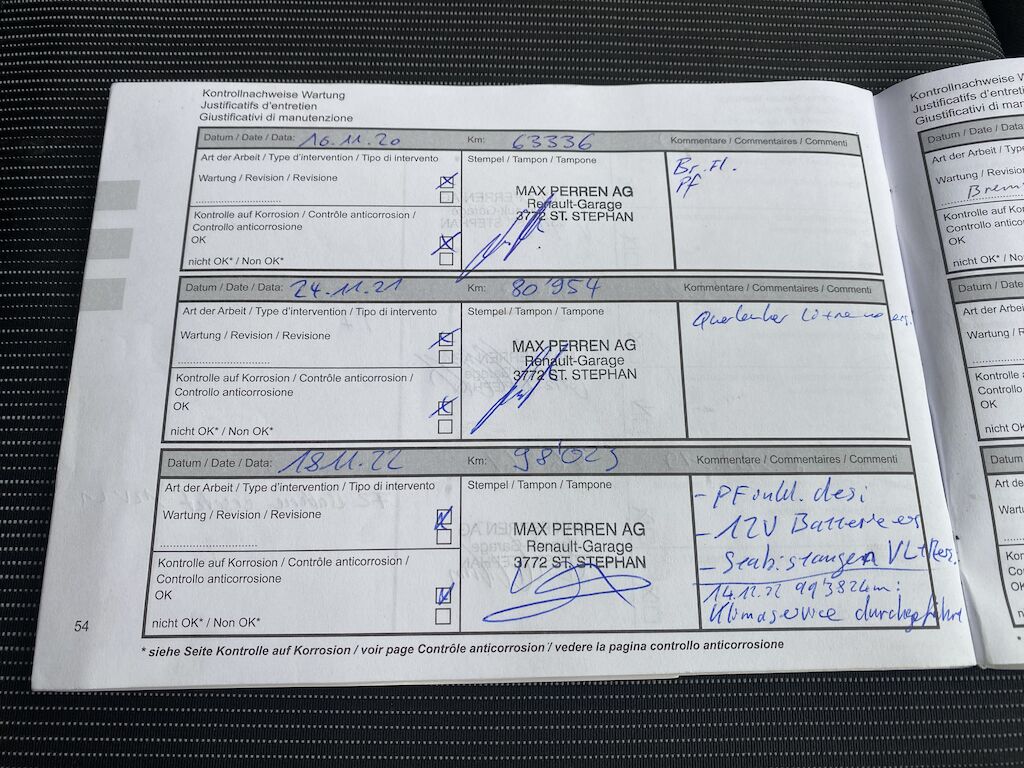 Kontrollnachweise Wartung
Justificatifs d'entretien
Giustificativi di manutenzione
Datum / Date / Data: 16.11.20 Km: 63336 Kommentare / Commentaires / Commenti
Art der Arbeit / Type d'intervention / Tipo di intervento Stempel / Tampon / Tampone Br. Fl.
Wartung / Revision / Revisione Pf
MAX PERREN AG
Renault-Garage
3772 ST. STEPHAN
Kontrolle auf Korrosion / Contrôle anticorrosion /
Controllo anticorrosione
OK
nicht OK* / Non OK*
Datum / Date / Data: 24.11.21 Km: 80'954 Kommentare / Commentaires / Commenti
Art der Arbeit / Type d'intervention / Tipo di intervento Stempel / Tampon / Tampone Querlenker
Wartung / Revision / Revisione
MAX PERREN AG
Renault-Garage
3772 ST. STEPHAN
Kontrolle auf Korrosion / Contrôle anticorrosion /
Controllo anticorrosione
OK
nicht OK* / Non OK*
Datum / Date / Data: 18.11.22 Km: 98'023 Kommentare / Commentaires / Commenti
Art der Arbeit / Type d'intervention / Tipo di intervento Stempel / Tampon / Tampone
- PF inkl. desi
Wartung / Revision / Revisione
- 12V Batterie er
MAX PERREN AG
Renault-Garage
3772 ST. STEPHAN
- Stabistangen
Kontrolle auf Korrosion / Contrôle anticorrosion /
Controllo anticorrosione
OK
14.12.22 99'382km:
nicht OK* / Non OK*
Klimaservice durchgeführt
54
* siehe Seite Kontrolle auf Korrosion / voir page Contrôle anticorrosion / vedere la pagina controllo anticorrosione
Kontrollnachweise W
Justificatifs d'entreti
Giustificativi di man
Datum / Date / Data:
Art der Arbeit / Typ
Wartung / Revision
Brem
Kontrolle auf Korros
Controllo anticorros
OK
nicht OK* / Non
Datum / Date / D
Art der Arbeit / T
Wartung / Revis
Kontrolle auf K
Controllo antic
OK
nicht OK* / No
Datum / Dat
Art der Arbei
Wartung /
Kontrolle
Controllo
OK
nicht OK